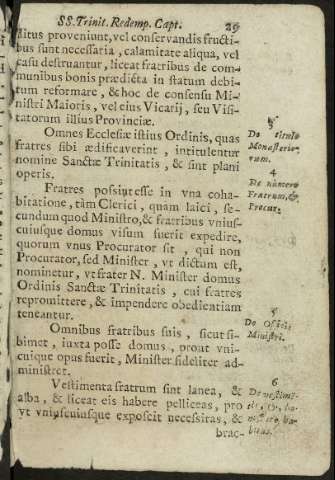 SS. Trinit. Redemp. Capt. 29
ditus proveniunt, vel conservandis fructi-
bus sunt necessaria, calamitate aliqua, vel
casu destruantur, liceat fratribus de com-
munibus bonis prædicta in statum debi-
tum reformare, & hoc de consensu Mi-
nistri Maioris, vel eius Vicarij, seu Visi-
tatorum illius Provinciæ.
Omnes Ecclesiæ istius Ordinis, quas
fratres sibi ædificaverint, intitulentur
nomine Sanctæ Trinitatis, & sint plani
operis.
Fratres possint esse in vna coha-
bitatione, tàm Clerici, quam laici, se-
cundum quod Ministro, & fratribus vnius-
cuiusque domus visum fuerit expedire,
quorum vnus Procurator sit, qui non
Procurator, sed Minister, vt dictum est,
nominetur, vt frater N. Minister domus
Ordinis Sanctæ Trinitatis, cui fratres
repromittere, & impendere obedientiam
teneantur.
Omnibus fratribus suis, sicut si-
bimet, iuxta posse domus, prout vni-
cuique opus fuerit, Minister fideliter ad-
ministret.
Vestimenta fratrum sint lanea, &
alba, & liceat eis habere pelliceas, pro
vt vniuscuiusque exposcit necessitas, &
brac-
3
De titulo
Monasterio-
rum.
4
De numero
Fratrum, &
Procur.
5
De Officio
Ministri.
6
De vestimē-